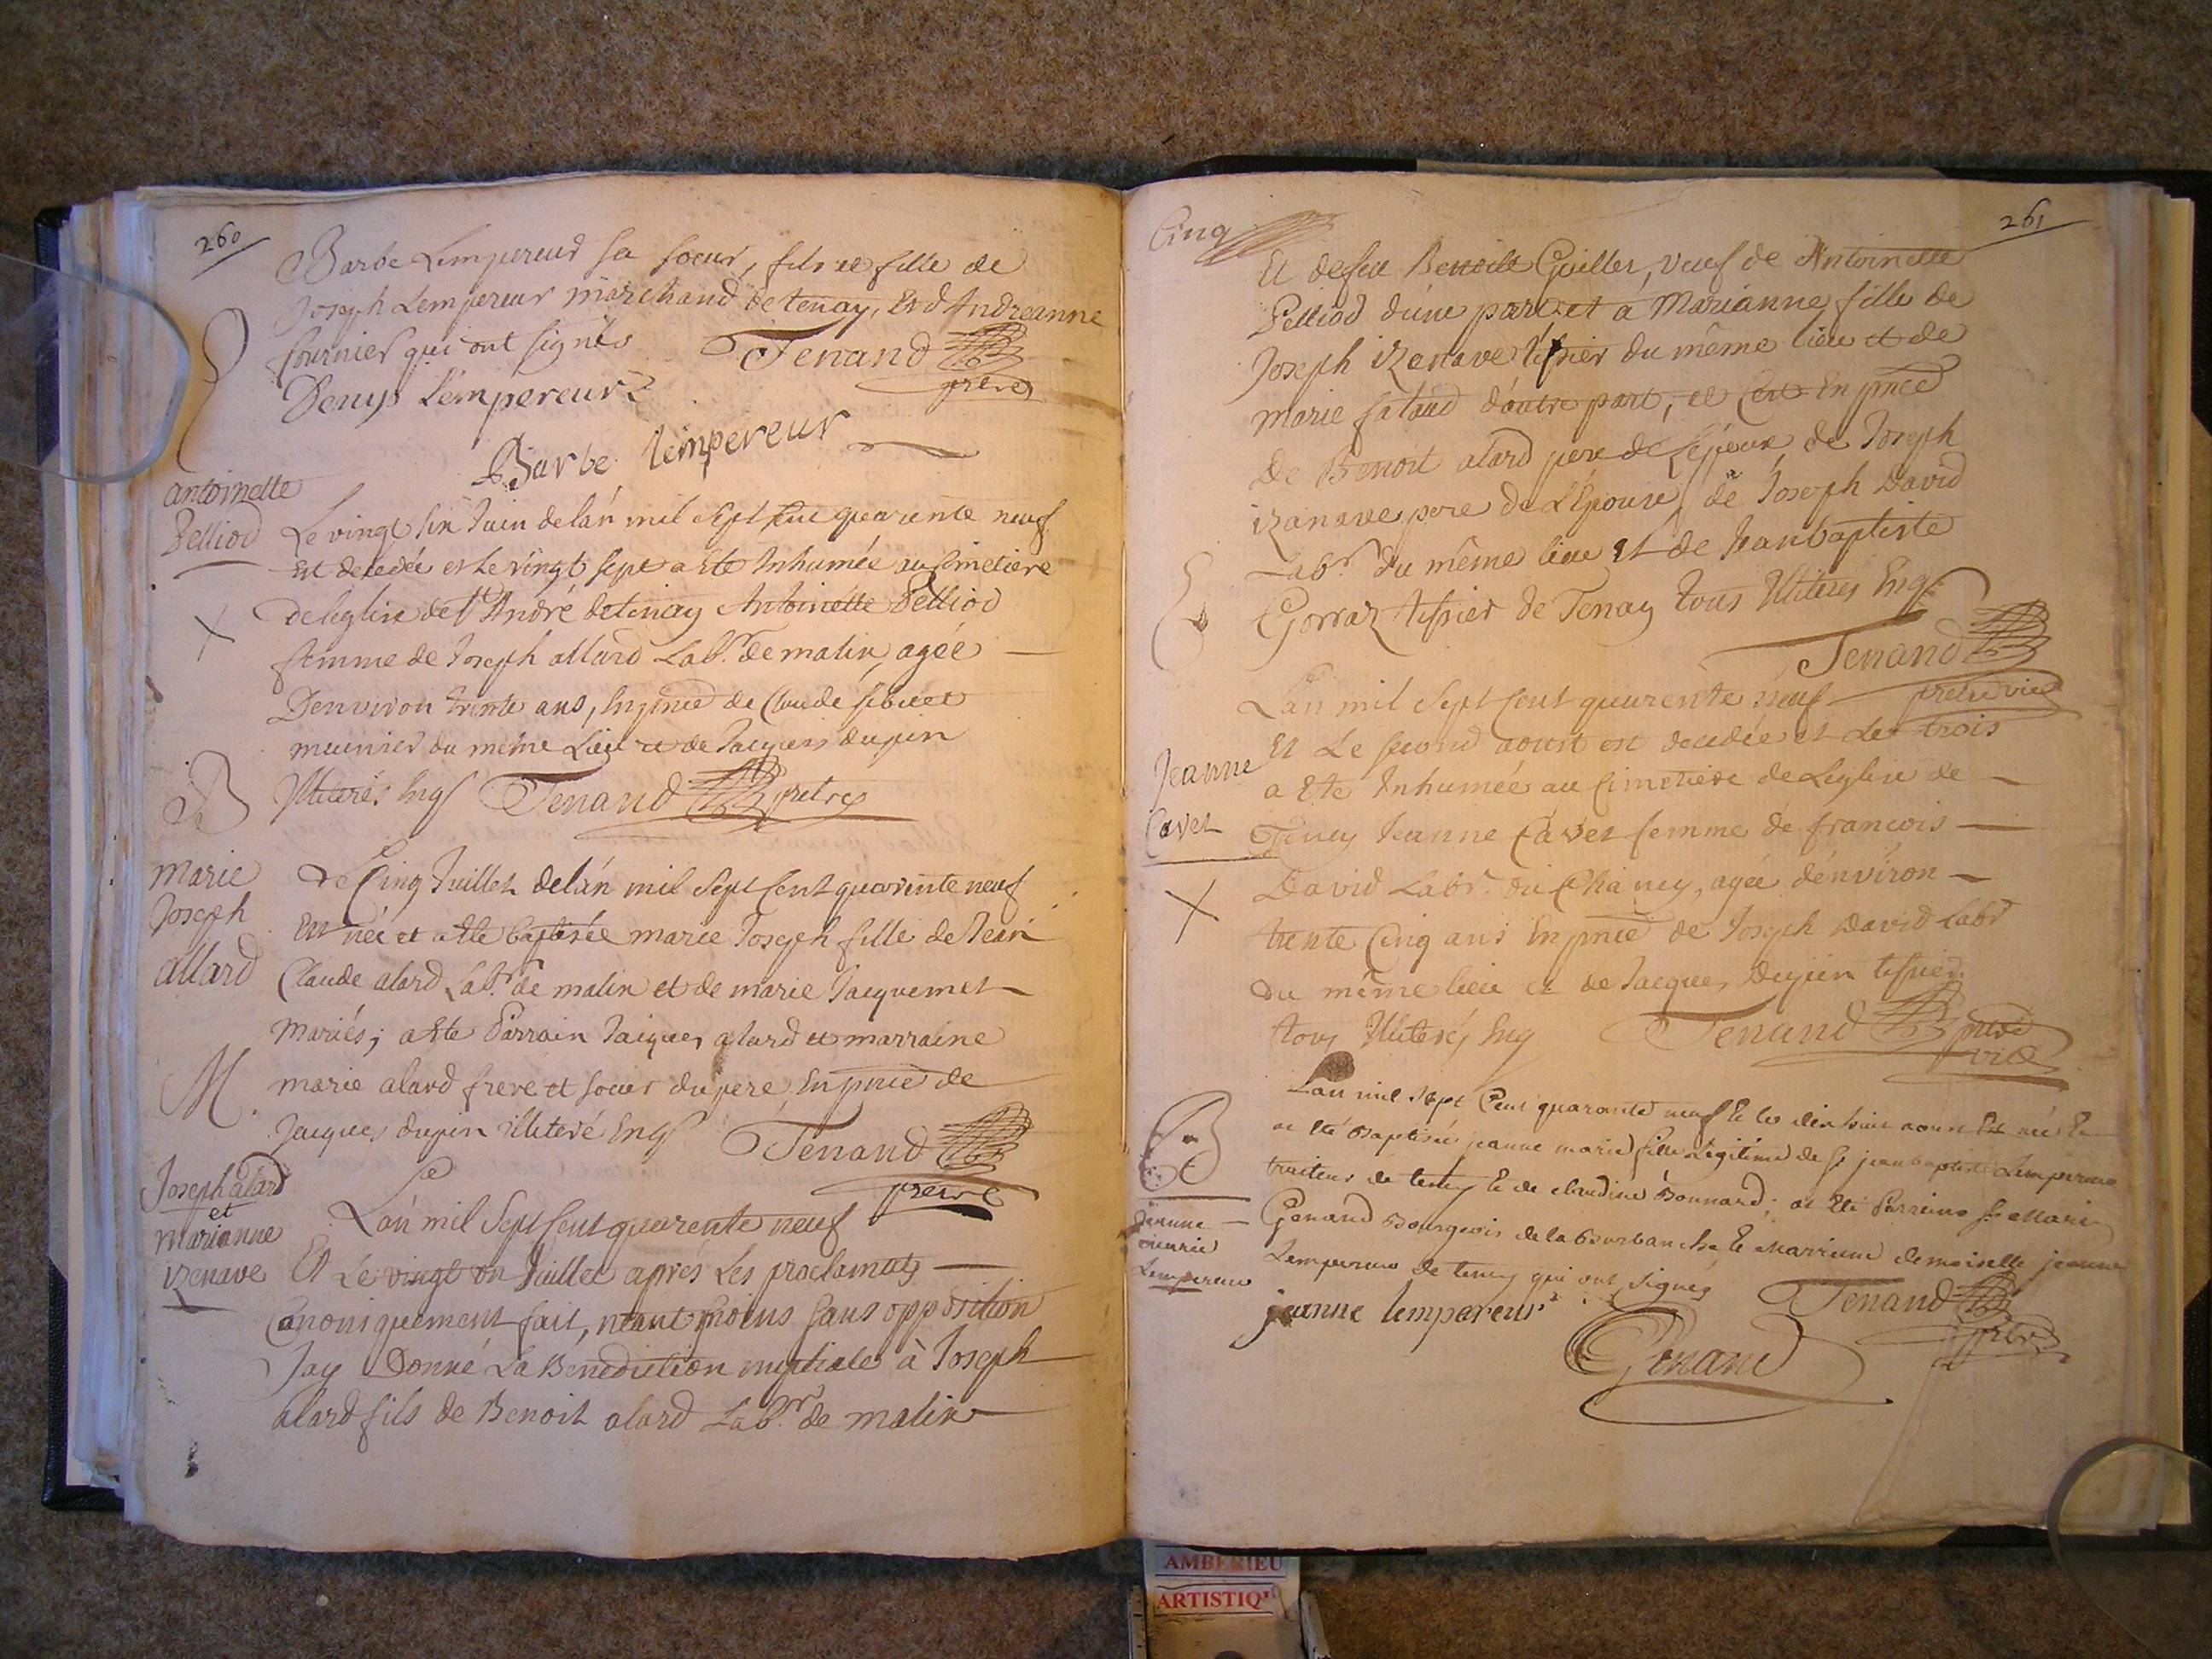 260
Barbe Lempereur sa soeur, fils et fille de
Joseph Lempereur marchand de tenay, Et d'Andreanne
fournier qui ont signés Tenand
prêtre
Denys Lempereur
Barbe lempereur
Antoinette
Pelliod
Le vingt six Juin de lán mil Sept Cent quarente neuf
Est decedée et Le vingt sept a Ete Inhumée au Cimetiere
de leglise de St André de tenay Antoinette Pelliod
femme de Joseph allard Labr. de malix, agée
D'environ trente ans, En pnce de Claude
meunier du même Lieu et de Jacques dupin
Illiterés Enqs Tenand prêtre
Marie
Joseph
allard
Le Cinq Juillet de lán mil Sept Cent quarente neuf
Est née et a Ete baptisée marie Joseph fille de Jean
Claude alard Labr. de malix et de marie Jacquemet
Mariés; a Ete Parrain Jacques alard et marraine
marie alard frere et soeur du pere, En pnce de
Jacques dupin Illiteré Enqs Tenand
prêtre
Joseph alard
et
Marianne
izenave
Lán mil Sept Cent quarente neuf
Et Le vingt un Juillet aprés Les proclamats
Canoniquement fait, neant moins sans opposition
Jay Donné La Benediction nuptiale à Joseph
alard fils de Benoit alard Labr. de malix
Cinq
261
Et defeue Benoite Guillet, veuf de Antoinette
Pelliod dúne part et á Marianne fille de
Joseph izenave tissier du même lieu et de
marie falaud d'autre part, et Cert En pnce
De Benoit alard pere de L'epoux, de Joseph
izanave pere de L'Epouse, de Joseph David
Labr. du même lieu Et de Jeanbaptiste
Gorraz tissier de Tenay tous Illiterés Enqs
Tenand
prêtre vice
Jeanne
Cavet
Lán mil Sept Cent quarente neuf
Et Le second aoust est decedée et Le trois
a Ete Inhumée au Cimetiere de Leglise de
Tenay Jeanne Cavet femme de francois
David Labr. du Chaney, agée dénviron
trente Cinq ans En pnce de Joseph David Labr
du même lieu et de Jacques Dupin tissier
tous Illiterés Enq Tenand prêtre
vice
Jeanne
marie
Lempereur
Lan mil sept Cent quarante neuf Et le dix huit aoust Est née Et
a Eté Baptisée jeanne marie fille Légitime de Sr jean baptiste Lempereur
traiteur de tenay Et de claudine Bonnard; a Eté Parrains Sr Marin
Genand Bourgeois de la Burbanche Et Marrienne demoiselle jeanne
Lempereur de tenay qui ont signés Tenand
prêtre
jeanne lempereur
Genand
AMBERIEU
ARTISTIQ